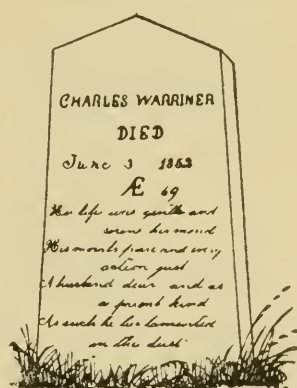 CHARLES WARRINER
DIED
June 3 1853
Æ 69
His life was gentle and
serene his mind
His morals pure and every
action just
A husband dear and as
a parent kind
As such he lies lamented
in the dust